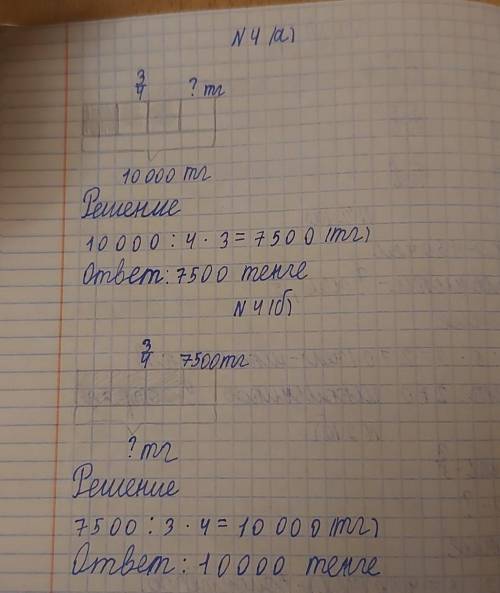 N 4 (а)
3/4 ? тг
10 000 тг
Решение
10 000 : 4 · 3 = 7500 (тг)
Ответ: 7500 тенге
N 4 (б)
3/4 7500 тг
? тг
Решение
7500 : 3 · 4 = 10 000 (тг)
Ответ: 10000 тенге